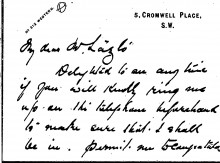 5, CROMWELL PLACE,
S.W.
My dear
Delighted to any time
if you will kindly ring me
up on the telephone beforehand
to make sure that I shall
be in. Permit me to